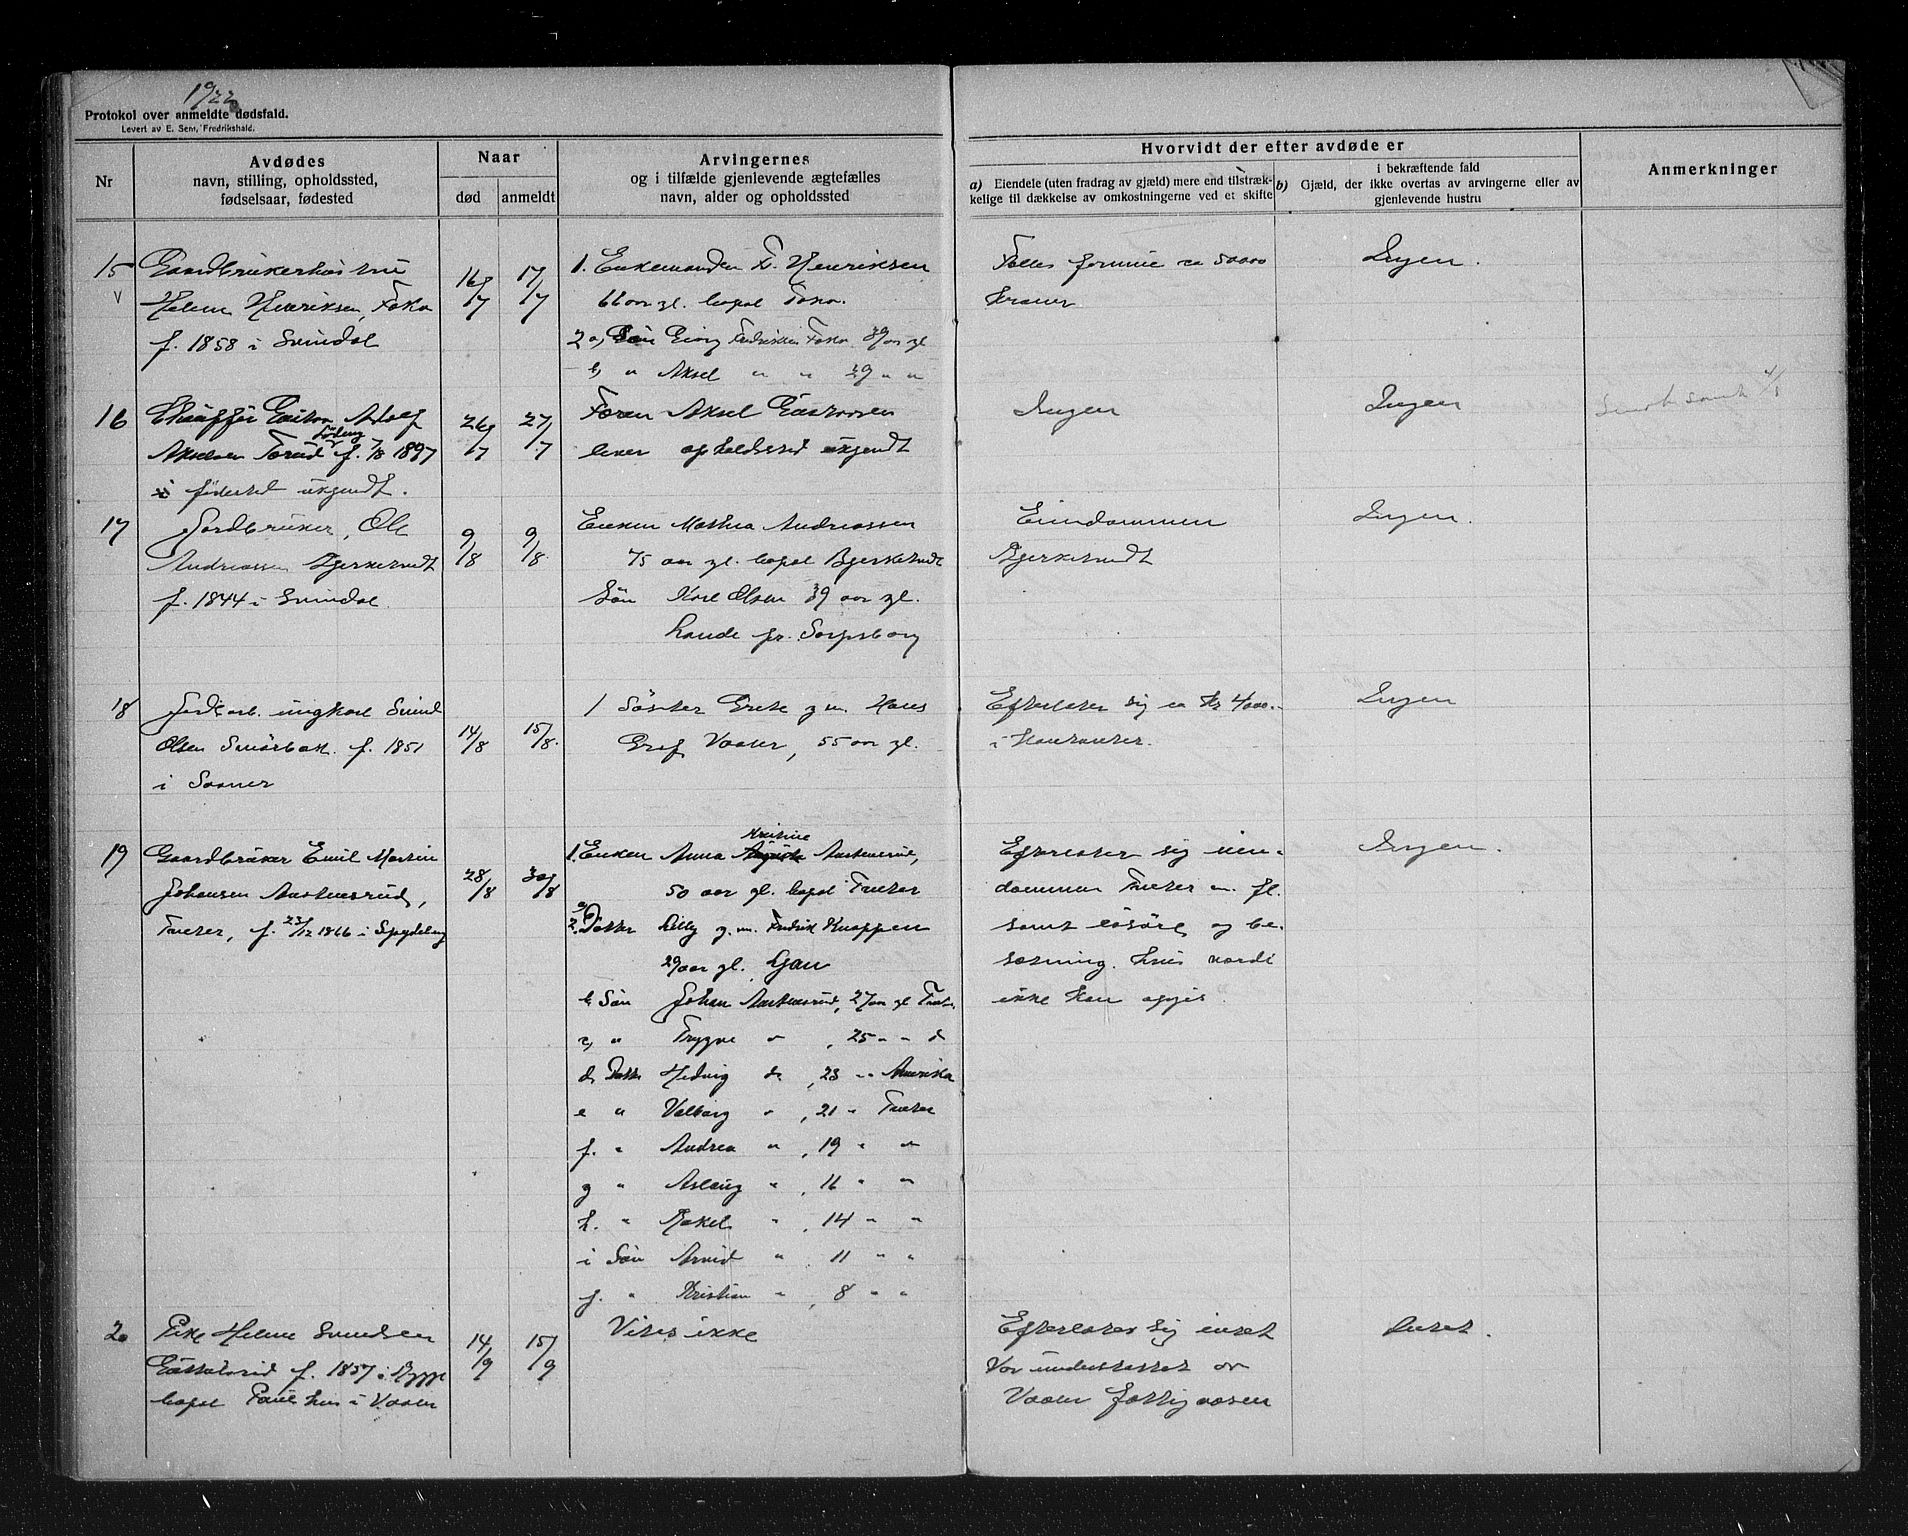 1922
Protokol over anmeldte dødsfald.
Levert av E. Sem, Fredrikshald.
Nr
Avdødes
navn, stilling, opholdssted,
fødselsaar, fødested
Naar
død
anmeldt
Arvingernes
og i tilfælde gjenlevende ægtefælles
navn, alder og opholdssted
Hvorvidt der efter avdøde er
a) Eiendele (uten fradrag av gjæld) mere end tilstræk-
kelige til dækkelse av omkostningerne ved et skifte
i bekræftende fald
b) Gjæld, der ikke overtas av arvingerne eller av
gjenlevende hustru
Anmerkninger
15
Gaardbrukerhustru
Helene Henriksen, Foko
f. 1858 i Svindal
16/7
17/7
1. Enkemanden F. Henriksen
66 aar gl. bopel Foko.
2 a, Søn Georg Fredriksen Foko 39 aar gl
b, " Aksel " " 29 " "
Felles formue ca 50000
kroner
Ingen.
16
Chauffør Gustav Adolf
Akselsen Torud f. 7/8 1897
i fødested ukjendt.
26/7
27/7
Faren Aksel Gustavsen
lever opholdssted ukjendt
Ingen
Ingen
4/8
17
Jordbruker, Ole
Andreassen Bjerkerudt
f. 1844 i Svindal
9/8
9/8.
Enken Mathea Andreassen
75 aar gl. bopel Bjerkerudt
Søn Karl Olsen 39 aar gl.
Lande pr. Sarpsborg
Eiendommen
Bjerkerudt
Ingen.
18
Jordarb. ungkarl Svend
Olsen Smørbæk. f. 1851
i Saaner
14/8
15/8.
1 Søster Grete g.m. Hans
Graf Vaaler, 55 aar gl.
Efterlater sig ca Kr 4000.-
i kontanter.
Ingen
19
Gaardbruker Emil Martin
Johansen Austnesrud,
Tveter, f. 23/12 1866 i Spydeberg
28/8
30/8
Kristine
1. Enken Anna Augusta Austnesrud,
50 aar gl. bopel Tveter
a
2. Datter Lilly g.m. Fredrik Knappen
29 aar gl. Gjau
b Søn Johan Austnesrud, 27 aar gl Tveter
c, " Trygve " , 25 " " d
d, Datter Hedvig do , 23 " " Amerika
e " Valborg " , 21 " Tveter
f. " Andrea " , 19 " "
g " Aslaug " , 16 " "
h. " Rakel " , 14 " "
i Søn Arvid " , 11 " "
j. " Kristian " , 8 " "
Efterlater sig eien-
dommen Tveter m. fl.
samt løsøre og be-
sætning. hvis værdi
ikke kan opgis.
Ingen.
20
Pike Helene Svendsen
f. 1857 i Rygge
bopel Paulshus i Vaaler
14/9
15/9
Vites ikke
Efterlater sig intet
Var understøttet av
Vaaler fattigvæsen
Intet.